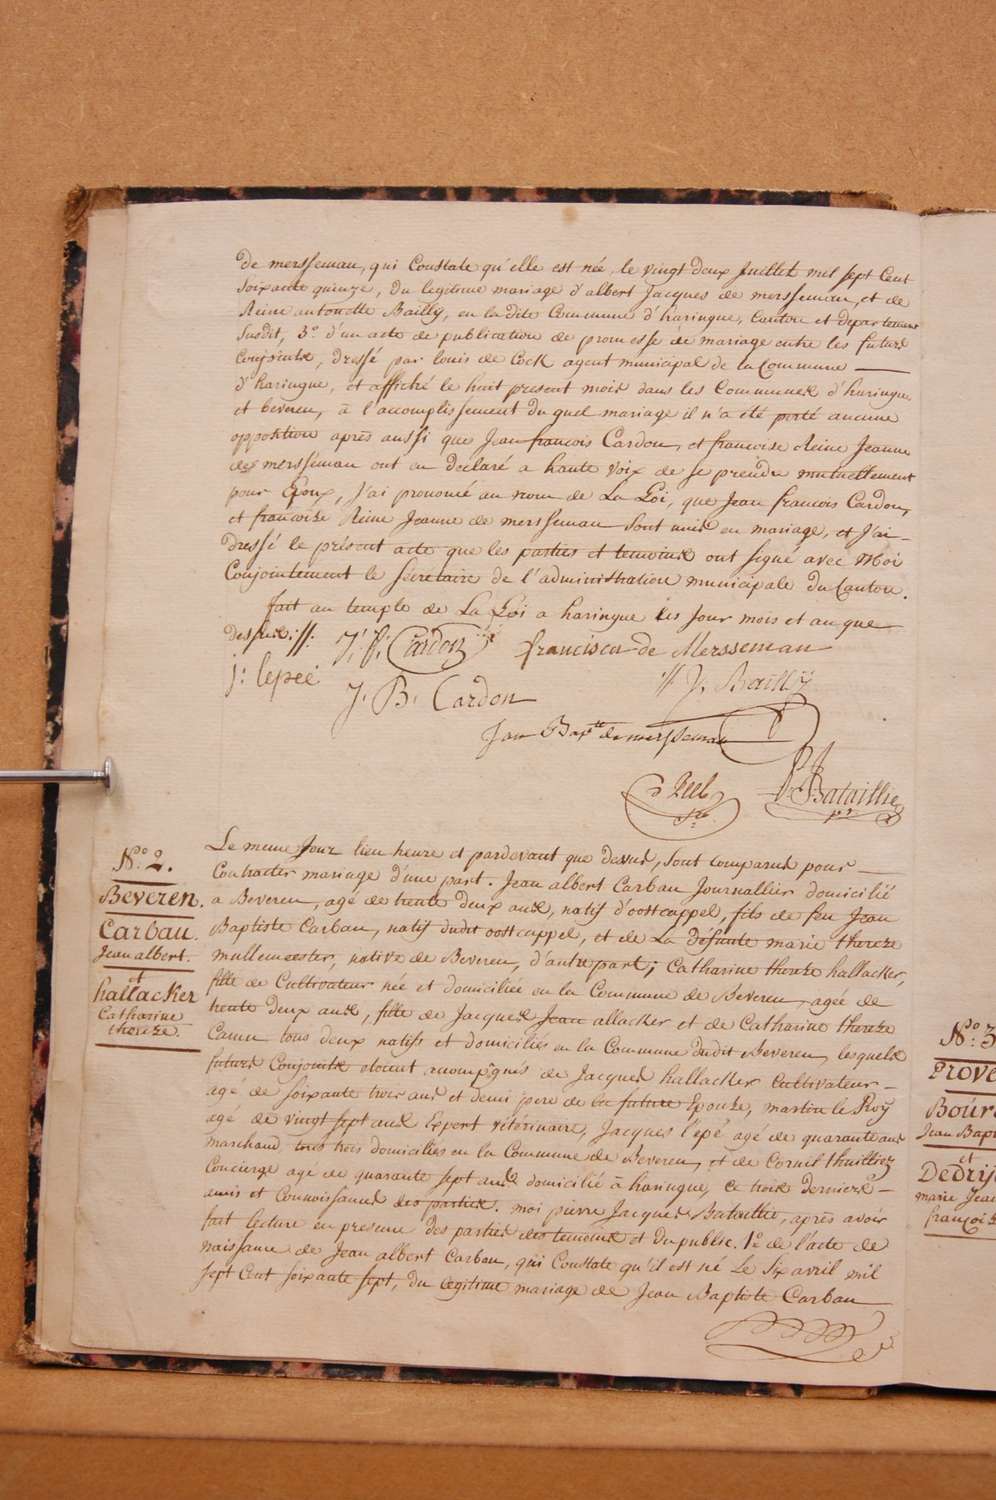 de mersseman, qui Constate qu'elle est née, le vingt deux Juillet mil sept Cent
Soixante quinze, du legitime mariage d'albert Jacques de mersseman, et de
Reine antonette Bailly, en la dite Commune d'haringue, Canton et departement
Susdit, 3.º d'un acte de publication de promesse de mariage entre les futurs
Conjoints, dressé par louis de Cock agent municipal de la Commune
d'haringue, et affiché le huit present mois dans les Communes d'haringue
et beveren, à l'accomplissement du quel mariage il n'a été porté aucune
opposition après aussi que Jean francois Cardon, et francoise Reine Jeanne
de mersseman ont en declaré a haute voix de se prendre mutuellement
pour Epoux, J'ai prononcé au nom de La Loi, que Jean francois Cardon,
et francoise Reine Jeanne de mersseman Sont unis en mariage, et J'ai
dressé le présent acte que les parties et temoins ont signé avec Moi
Conjointement le secretaire de l'administration municipale du Canton.
fait au temple de La Loi a haringue les Jour mois et an que
dessus://:
J: f: Cardon
francisca de Mersseman
j: lepeé
J. B. Cardon
J. Bailly
Jan Bap.te de mersseman
Reel
PJBataillie
N.º 2.
Beveren.
Carbau.
Jean albert.
et
hallacker
Catharine
thereze.
Le meme Jour lieu heure et pardevant que dessus, Sont comparus pour
Contracter mariage d'une part. Jean albert Carbau Journallier domicilié
a Beveren, agé de trente deux ans, natif d'oostcappel, fils de feu Jean
Baptiste Carbau, natif dudit oostcappel, et de La Défunte marie thereze
mullemeester, native de Beveren, d'autre part; Catharine thereze hallacker,
fille de Cultivateur née et domiciliée en la Commune de Beveren, agée de
trente deux ans, fille de Jacques Jean allacker et de Catharine thereze
Camu tous deux natifs et domiciliés en la Commune dudit Beveren, lesquels
futurs Conjoints etoient accompagnés de Jacques hallacker Cultivateur
agé de soixante trois ans et demi pere de la future Epouse, martin le Roÿ
agé de vingt sept ans Expert vétérinaire, Jacques l'epé agé de quarante ans
marchand, tous trois domiciliés en la Commune de Beveren, et de Cornil thuilliez
Concierge agé de quarante sept ans domicilié à haringue, ce trois derniers
amis et Connoissances des parties. moi pierre Jacques Bataillie, après avoir
fait lecture en presence des parties des temoins et du public. 1.º de l'acte de
naissance de Jean albert Carbau, qui Constate qu'il est né Le Six avril mil
sept Cent soixante sept, du legitime mariage de Jean Baptiste Carbau
N.º 3
Prove
Boúr
Jean Bapt
et
Dedrij
marie Jean
françoi